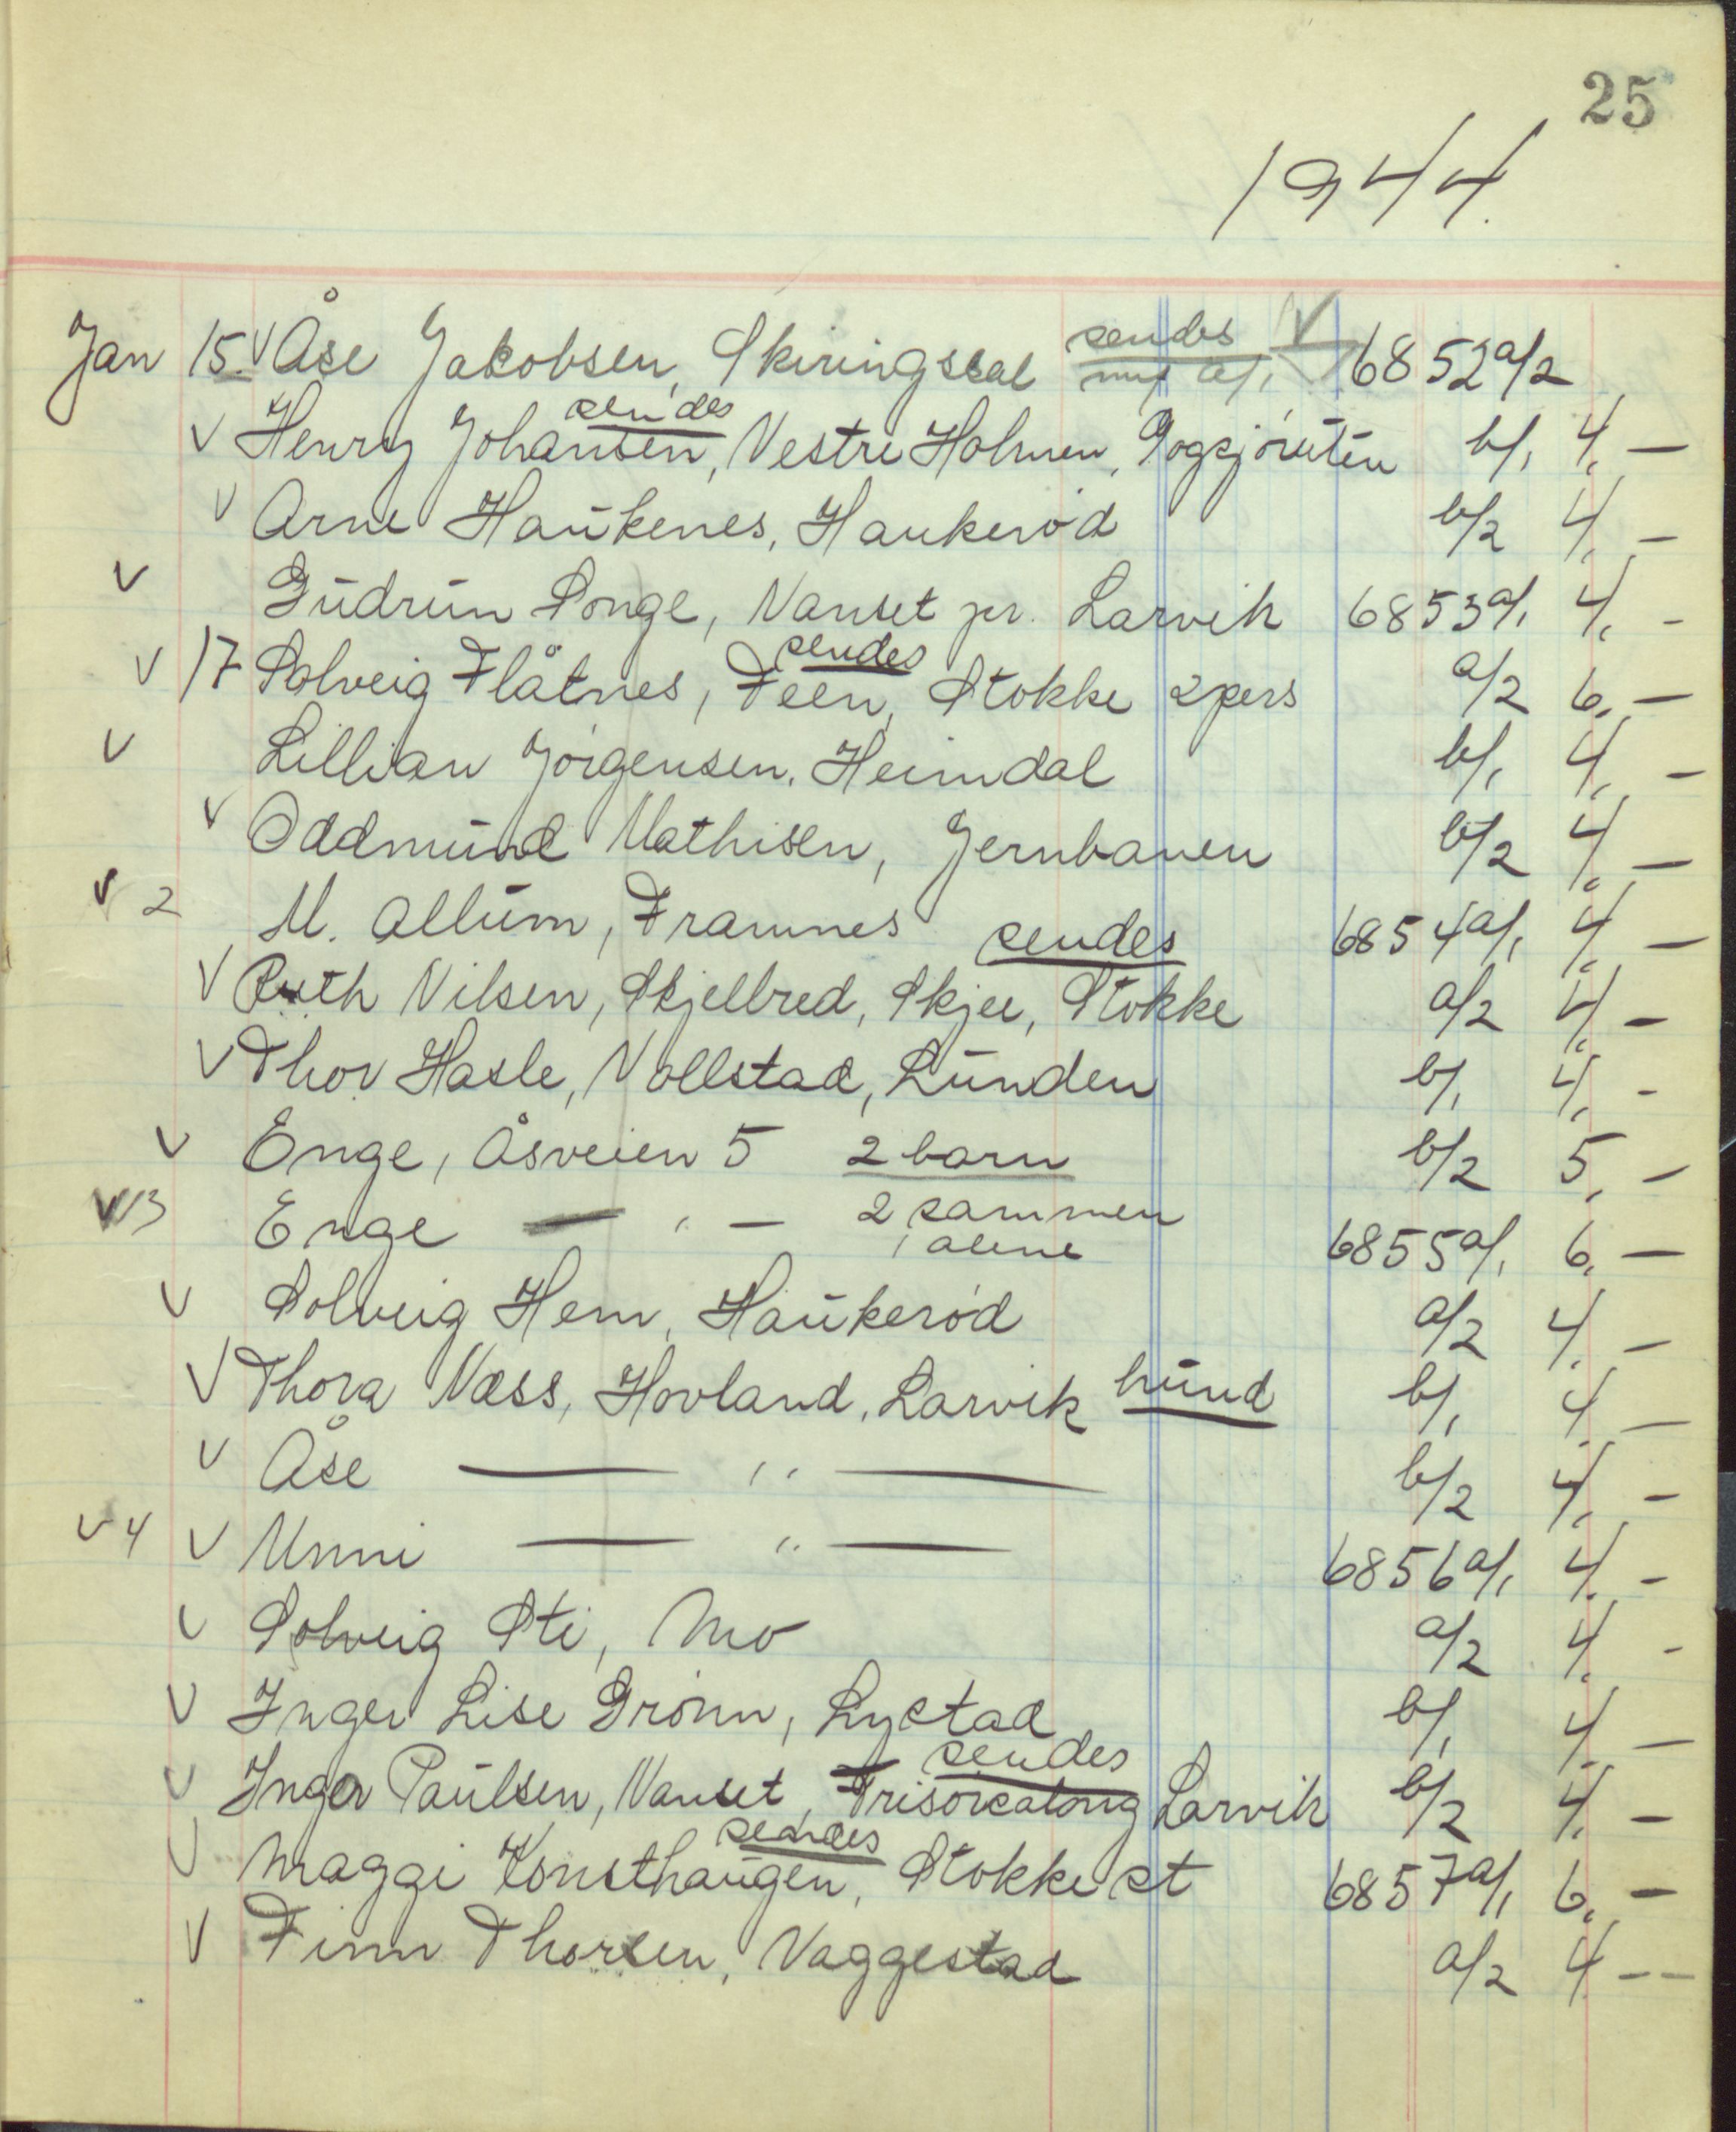 25
1944.
Jan 15. V Åse Jakobsen, Skiringssal sendes V 6852 a/2
V Henry Johansen, sendes Vestre Holmen, Gogsjøruten b/1 4,-
V Arne Haukenes, Haukerød b/2 4,-
V Gudrun Songe, Nanset pr. Larvik 6853 a/1 4,-
V 17 Solveig Flåtnes, Feen, sendes Stokke 2 pers a/2 6,-
V Lillian Jørgensen, Heimdal b/1 4,-
V Oddmund Mathisen, Jernbanen b/2 4,-
V 2 M. Allum, Framnes 6854 a/1 4,-
V Ruth Nilsen, Skjelbred, Skjee, Stokke sendes a/2 4,-
V Thor Hasle, Vollstad, Lunden b/1 4,-
V Enge, Åsveien 5 2 barn b/2 5,-
V 3 Enge — " — 2 sammen 6855 a/1 6,-
1 alene
V Solveig Hem, Haukerød a/2 4,-
V Thora Næss, Hovland, Larvik hund b/1 4,-
V Åse — " — b/2 4,-
V 4 V Unni — " — 6856 a/1 4,-
V Solveig Sti, Mo a/2 4,-
V Inger Lise Grønn, Lystad b/1 4,-
V Inger Paulsen, Nanset, Frisørsalong sendes Larvik b/2 4,-
V Maggi Konsthaugen, sendes Stokke st 6857 a/1 6,-
V Finn Thorsen, Vaggestad a/2 4--